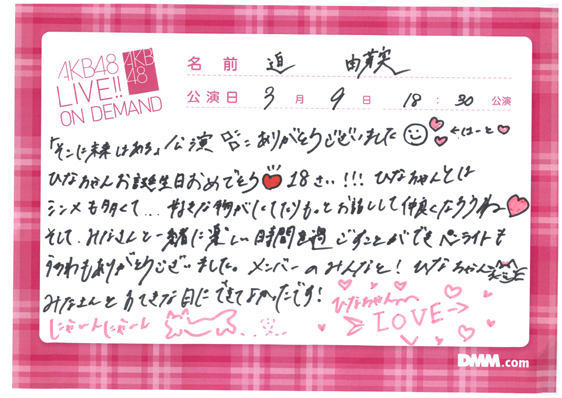 AKB48
LIVE!!
ON DEMAND
AKB
48
名前 迫 由芽実
公演日 3月9日 18:30 公演
「そこに未来はある」公演 ありがとうございました ←はーと
ひなちゃんお誕生日おめでとう 18さい!!! ひなちゃんとは
シンメも多くて... 好きな物が もっとお話しして仲良くなろうね
そして、みなさんと一緒に楽しい時間を過ごすことができ ペンライトも
うちわもありがとうございました。メンバーのみんなと! ひなちゃん
みなさんと すてきな日にできてよかったです!
にゃーんにゃーん ひなちゃんへ
LOVE
DMM.com